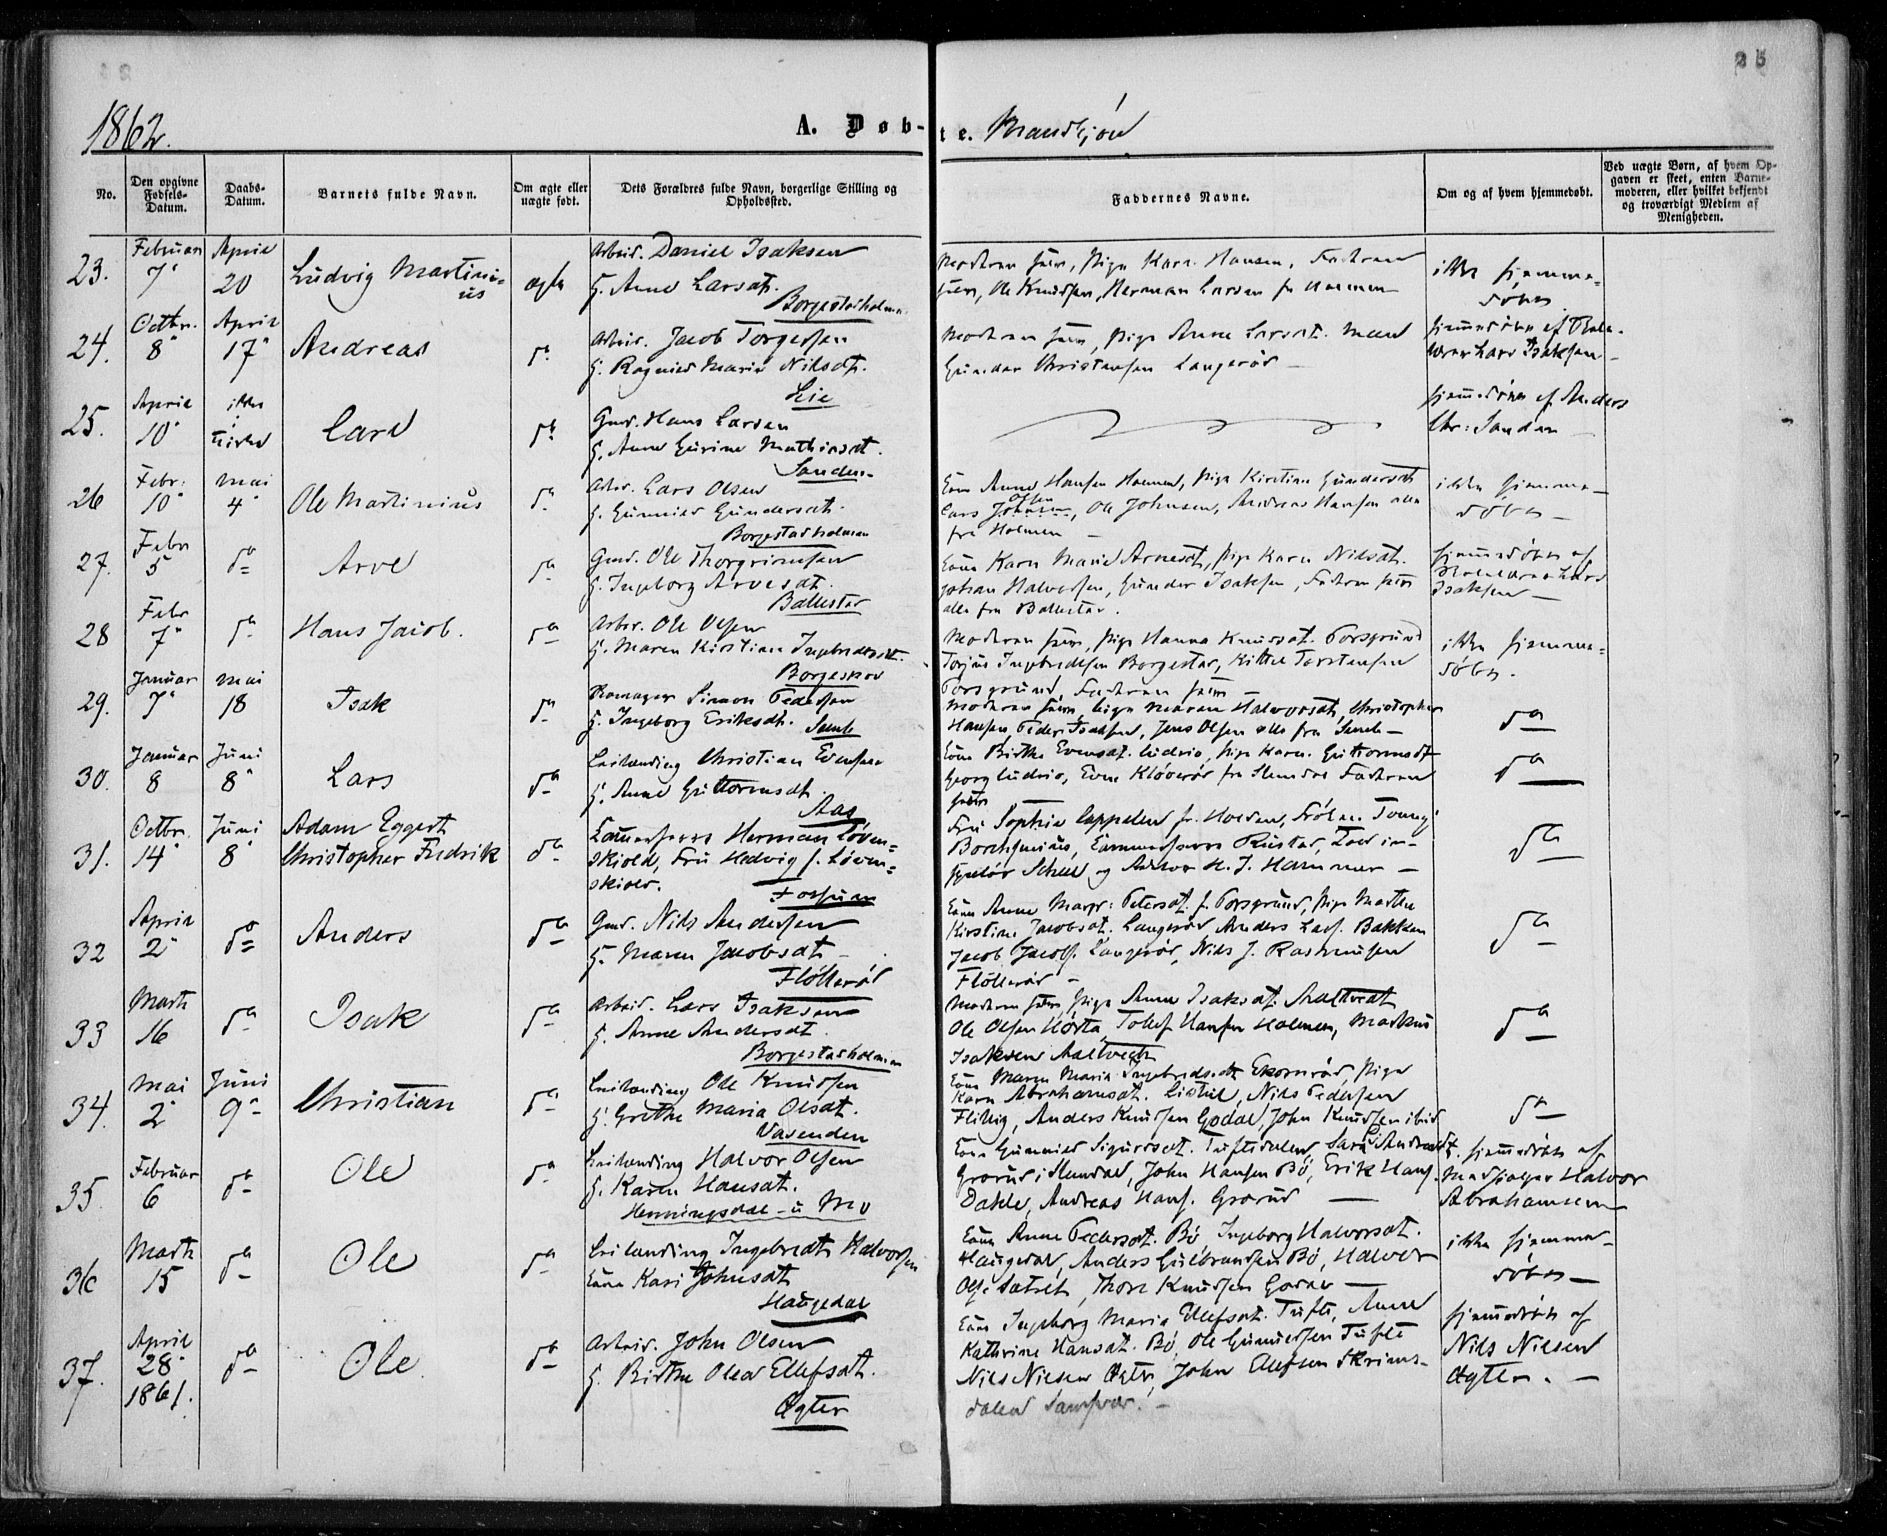 25
1862.
A. Døb-te. Mandkjøn
No.
Den opgivne Fødsels-Datum.
Daabs-Datum.
Barnets fulde Navn.
Om ægte eller uægte født.
Dets Forældres fulde Navn, borgerlige Stilling og Opholdssted.
Faddernes Navne.
Om og af hvem hjemmedøbt.
Ved uægte Børn, af hvem Op-
gaven er skeet, enten Barne-
moderen, eller hvilket bekjendt
og troværdigt Medlem af
Menigheden.
23. Februar 7 April 20 Ludvig Martini-
us ægte
Arbeid. Daniel Isaksen
H. Anne Larsdt.
Borgestadholmen
Moderen selv, Pige Karn. Hansen, Faderen
selv, Ole Knudsen, Herman Larsen fr Holmen
ikke hjemme-
døbt
24. Octbr. 8 April 17 Andreas do
Arbeid. Jacob Torgersen
H. Ragnild Maria Nilsdt.
Lie
Moderen selv, Pige Anne Larsdt.
Gunder Christensen Langerød
hjemmedøbt af Skole-
lærer Lars Isaksen
25. April 10 ikke i Kirke Carl do
Gmd. Hans Larsen
H. Anne Gurine Mathiasdt.
Sanden
hjemmedøbt af Anders
Chr: Sanden
26 Febr: 10 Mai 4 Ole Martinius do
Arbd. Lars Olsen
H. Gunnild Gundersdt.
Borgestadholmen
Anne Hansen Holmen, Pige Kirstine Gundersdt
Lars Olsen, Ole Johnsen, Andreas Hansen alle
fra Holmen
ikke hjemme-
døbt
27. Febr 5 do Arve do
Gmd. Ole Thorgrimsen
H. Ingeborg Arvesdt.
Ballestad
Kone Karn Marie Arnesdt, Pige Karn Nilsdt.
Johan Halvorsen, Gunder Isaksen, Faderen selv
alle fra Ballestad.
hjemmedøbt af
Skolelærer Lars
Isaksen
28 Febr 7 do Hans Jacob. do
Arbd. Ole Olsen
H. Maren Kirstine Ingebretsdt.
Borgeskov
Moderen selv, Pige Hanna Knudsdt. Porsgrund
Torjus Ingebretsen Borgestad, Kittel Torstensen
Porsgrund, Faderen selv
ikke hjemme-
døbt.
29. Januar 7 Mai 18 Isak do
Simon Pedersen
H. Ingeborg Eriksdt.
Moderen selv, Pige Maren Halvorsdt, Christopher
Hansen, Peder Isaksen, Jens Olsen alle fra
do
30. Januar 8 Juni 8 Lars do
Leilending Christian Evensen
H. Anne Guttormsdt.
Aas
Kone Birthe Evensdt. Pige Karn. Guttormsdt
Georg Even Kløverød fra Slemdal Faderen
selv
do
31. Octbr. 14 Juni 8 Adam Eggert
Christopher Fredrik do
Kammerherre Herman Løven-
skiold, Fru Hedvig f. Løven-
skiold.
Fossum
Fru Sophie Cappelen fr. Holden, Frøken Tommy
Borchsenius, Kammerherre Rustad, Told in-
spektør Scheel og H. J. Hammer
do
32 April 2 do Anders do
Gmd. Nils Andersen
H. Maren Jacobsdt
Flølterød
Kone Anne Margr: Petersdt. f. Porsgrund, Pige Marthe
Kirstine Jacobsdt. Langerød Anders Lars. Bakken
Jacob Jacobs. Langerød, Nils J. Rasmussen
Flølterød
do
33 Marts 16 do Isak do
Arbeid. Lars Isaksen
H. Anne Andersdt.
Borgestadholmen
Moderen selv, Pige Anne Isaksdt.
Ole Olsen Hørta, Tollef Hansen Holmen, Markus
Isaksen
do
34. Mai 2 Juni 9 Christian do
Leilending Ole Knudsen
H. Grethe Maria Olsdt.
Vasenden
Kone Maren Maria Ingebretsdt Ekornrød, Pige
Karn Abrahamsdt. Listul, Nils Pedersen
Flittig, Anders Knudsen Godal, John Knudsen ibid
do
35. Februar 6 do Ole do
Leilending Halvor Olsen
H. Karen Hansdt.
Henningsdal u. Mo
Kone Gunnild Sigurdsdt. Tuftedalen, Sara Andersdt.
Grorud i Slemdal, John Hansen Bø, Erik Hans.
Dahle, Andreas Hans. Grorud
hjemmedøbt af
Medhjælper Halvor
Abrahamsen
36 Marts 15 do Ole do
Leilending Ingebredt Halvorsen
Kone Kari Johnsdt
Haugedal
Kone Anne Pedersdt. Bø Ingeborg Halvorsdt.
Haugedal, Anders Gulbrandsen Bø, Halvor
Ols. Sætret, Thore Knudsen Godal
ikke hjemme-
døbt
37. April 28 1861. do Ole do
Arbeid. John Olsen
H. Birthe Olea Ellefsdt.
Øgter
Kone Ingeborg Maria Ellefsdt. Tufte, Anne
Kathrine Hansdt. Bø, Ole Gunnersen Tufte
Nils Nielsen Øgter, John Ellefsen Skrims-
dalen
hjemmedøbt af
Nils Nielsen
Øgter.